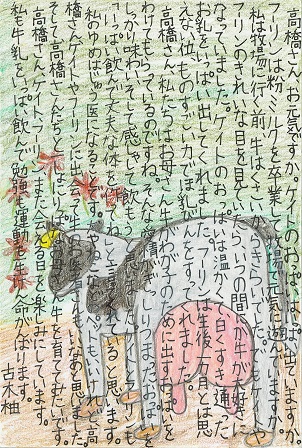 高橋さん、お元気ですか。ケイトのおっぱいはいっぱい出ていますか。
フーリンは粉ミルクを卒業して、牧場で元気に遊んでいますか。
私は牧場に行く前、牛はくさいからきらいでした。でもケイトと
フーリンのきれいな目を見ていたら、いつの間にか牛が大好きに
なっていました。ケイトのおっぱいは温かくて、白くすき通った
お乳をいっぱい出してくれました。フーリンは生後一カ月とは思
えない位、ものすごい力がほ乳びんをすって
高橋さん、私たちはお母さん牛がわが子のために出すお乳を
わけてもらっているのですね。そんな愛情が
しっかり味わい、そして感しゃして飲もうと思います。
「いっぱい飲んで丈夫な体をつくってね」と言ってくれていると思います。
私のゆめはじゅう医になることです。
橋さんやケイトやフーリンに出会って牛のお医者さんも
そして高橋さんたちといっしょにりっぱなお母さん牛を育てたいです。
高橋さん、ケイト、フーリン、また会える日を楽しみにしています。
私も牛乳をいっぱい飲んで勉強も運動も一生けん命がんばります。
古木柚